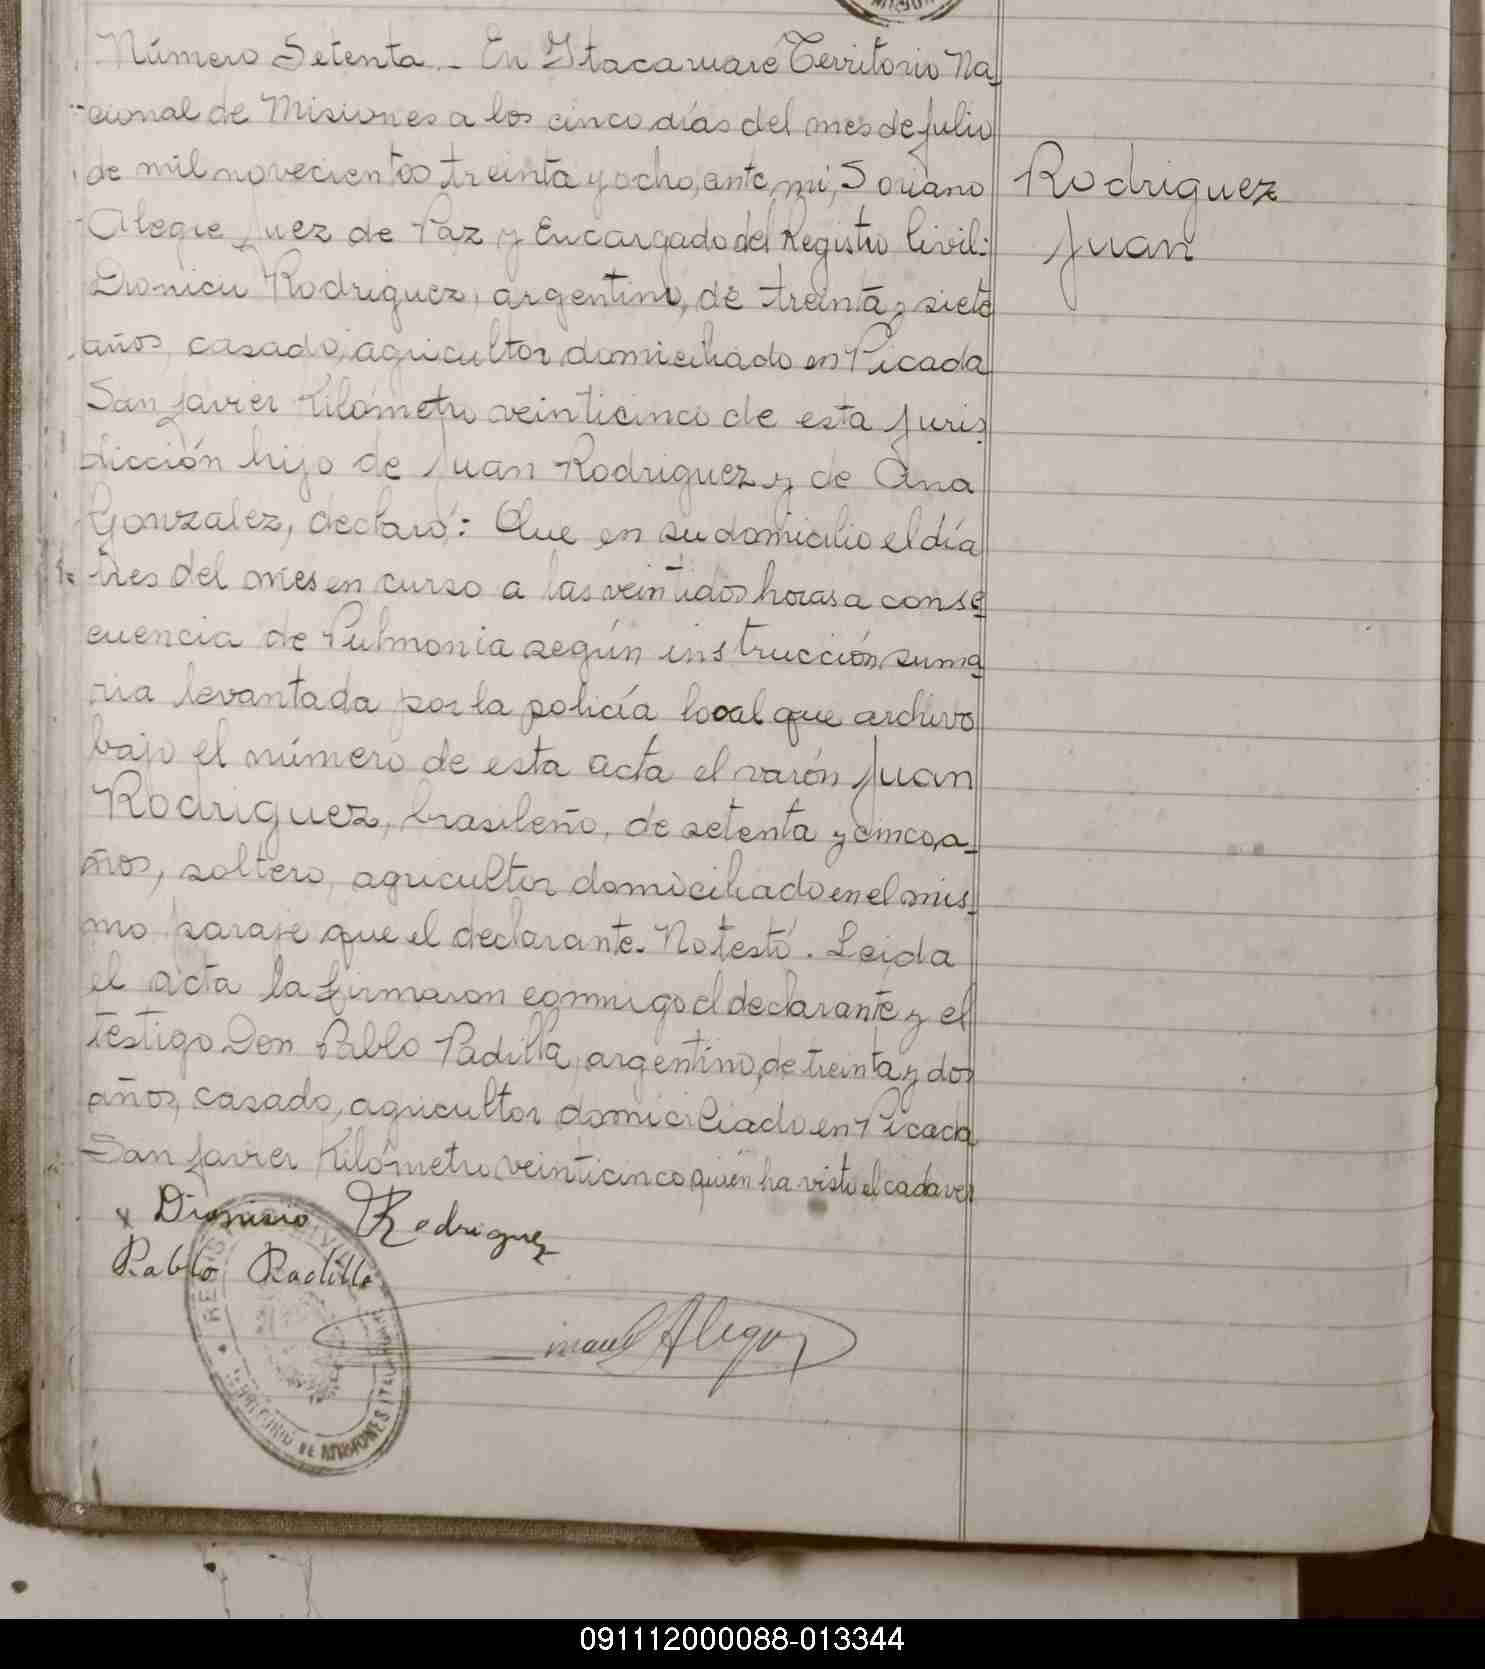 Número Setenta. - En Itacaruaré Territorio Na-
cional de Misiones a los cinco días del mes de Julio
de mil novecientos treinta y ocho, ante, mi, Soriano
Alegre Juez de Paz y Encargado del Registro Civil:
Dionicio Rodriguez, argentino, de treinta y siete
años, casado, agricultor domiciliado en Picada
San Javier Kilómetro veinticinco de esta Juris-
dicción hijo de Juan Rodriguez y de Ana
Gonzalez, declaró: Que en su domicilio el día
tres del mes en curso a las veintidos horas a conse-
cuencia de Pulmonia según instrucción suma-
ria levantada por la policía local que archivo
bajo el número de esta acta el varón Juan
Rodriguez, brasileño, de setenta y cinco, a-
ños, soltero, agricultor domiciliado en el mis-
mo paraje que el declarante. No testó. Leida
el acta la firmaron conmigo el declarante y el
testigo Don Pablo Padilla, argentino, de treinta y dos
años, casado, agricultor domiciliado en Picada
San Javier Kilómetro veinticinco quien ha visto el cadaver
Rodriguez
Juan
x Dionisio Rodriguez
Pablo Padilla
Alegre
REGISTRO CIVIL
TERRITORIO DE MISIONES
091112000088-013344